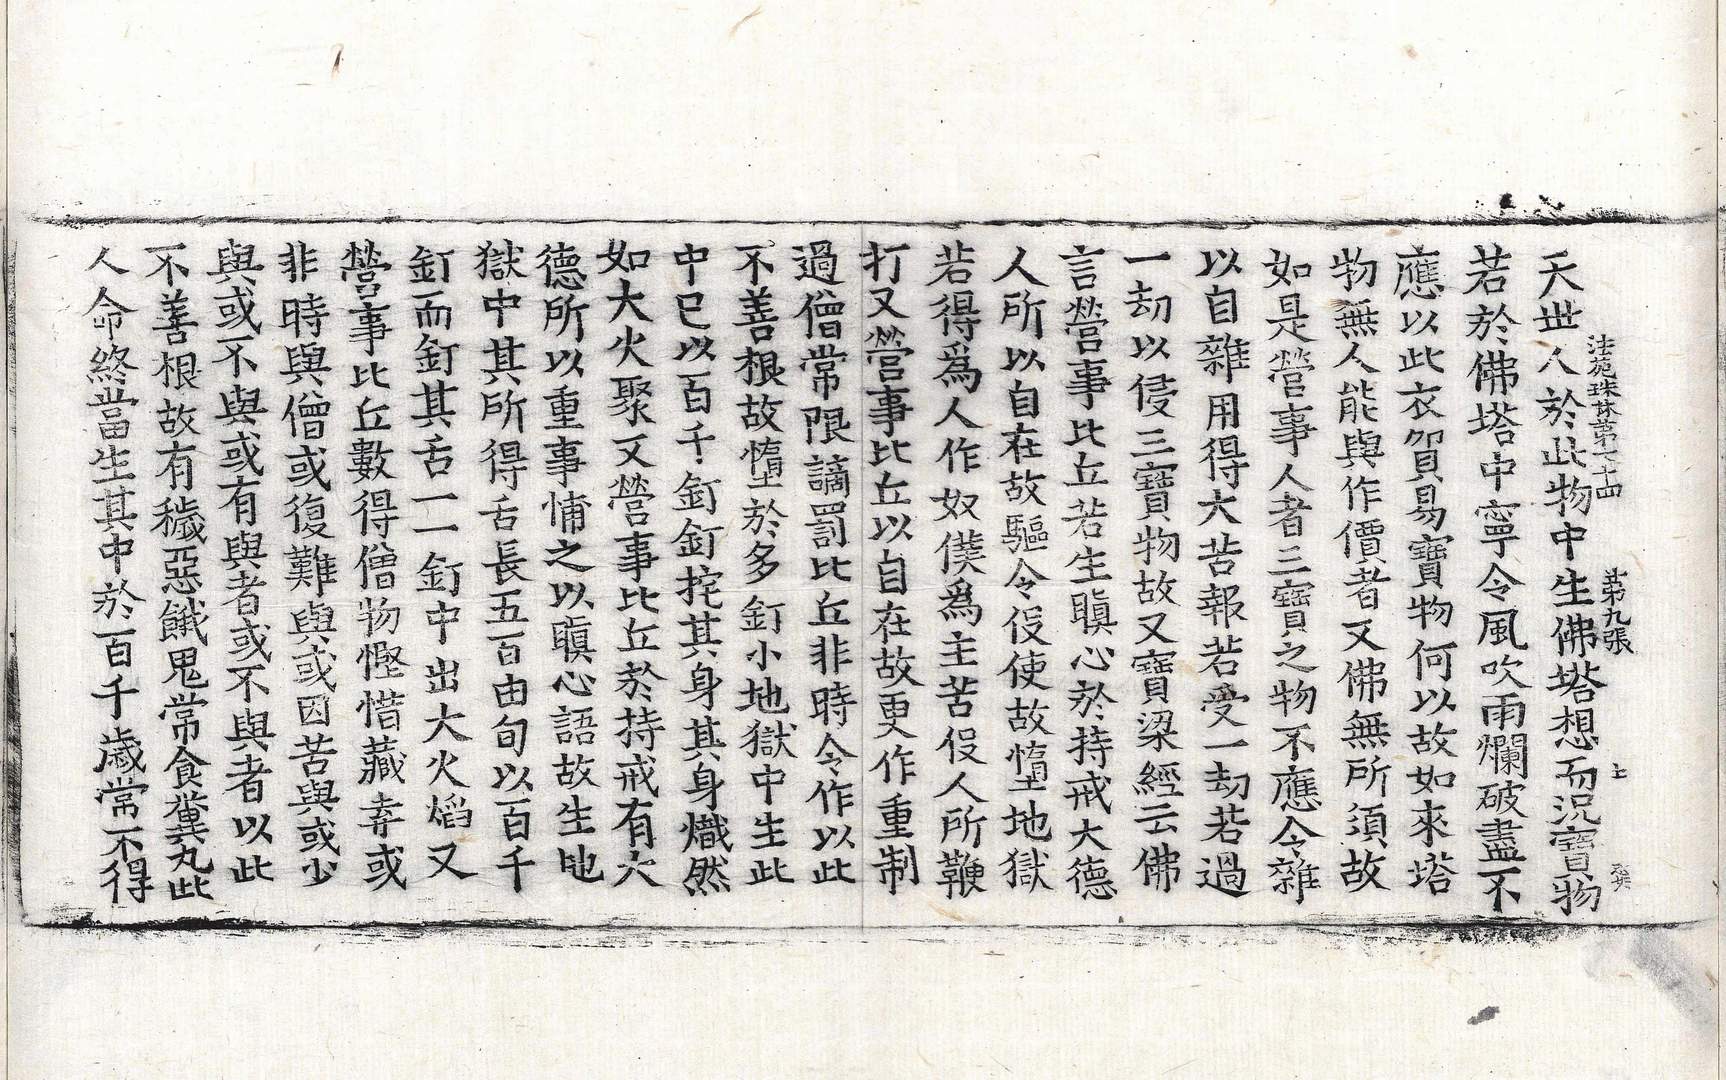 法苑珠林第七十四　第九張　士
天世人於此物中生佛塔想而況寶物
若於佛塔中寧令風吹雨爛破盡不
應以此衣貿易寶物何以故如來塔
物無人能與作價者又佛無所須故
如是營事人者三寶之物不應令雜
以自雜用得大苦報若受一劫若過
一劫以侵三寶物故又寶梁經云佛
言營事比丘若生瞋心於持戒大德
人所以自在故驅令役使故墮地獄
若得爲人作奴僕爲主苦役人所鞭
打又營事比丘以自在故更作重制
過僧常限謫罰比丘非時令作以此
不善根故墮於多釘小地獄中生此
中已以百千釘釘挓其身其身熾然
如大火聚又營事比丘於持戒有大
德所以重事怖之以瞋心語故生地
獄中其所得舌長五百由旬以百千
釘而釘其舌一一釘中出大火焰又
營事比丘數得僧物慳惜藏弆或
非時與僧或復難與或因苦與或少
與或不與或有與者或不與者以此
不善根故有穢惡餓鬼常食糞丸此
人命終當生其中於百千歲常不得